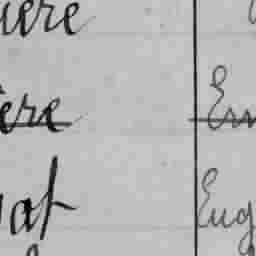 ière
ière Ern
at Eug